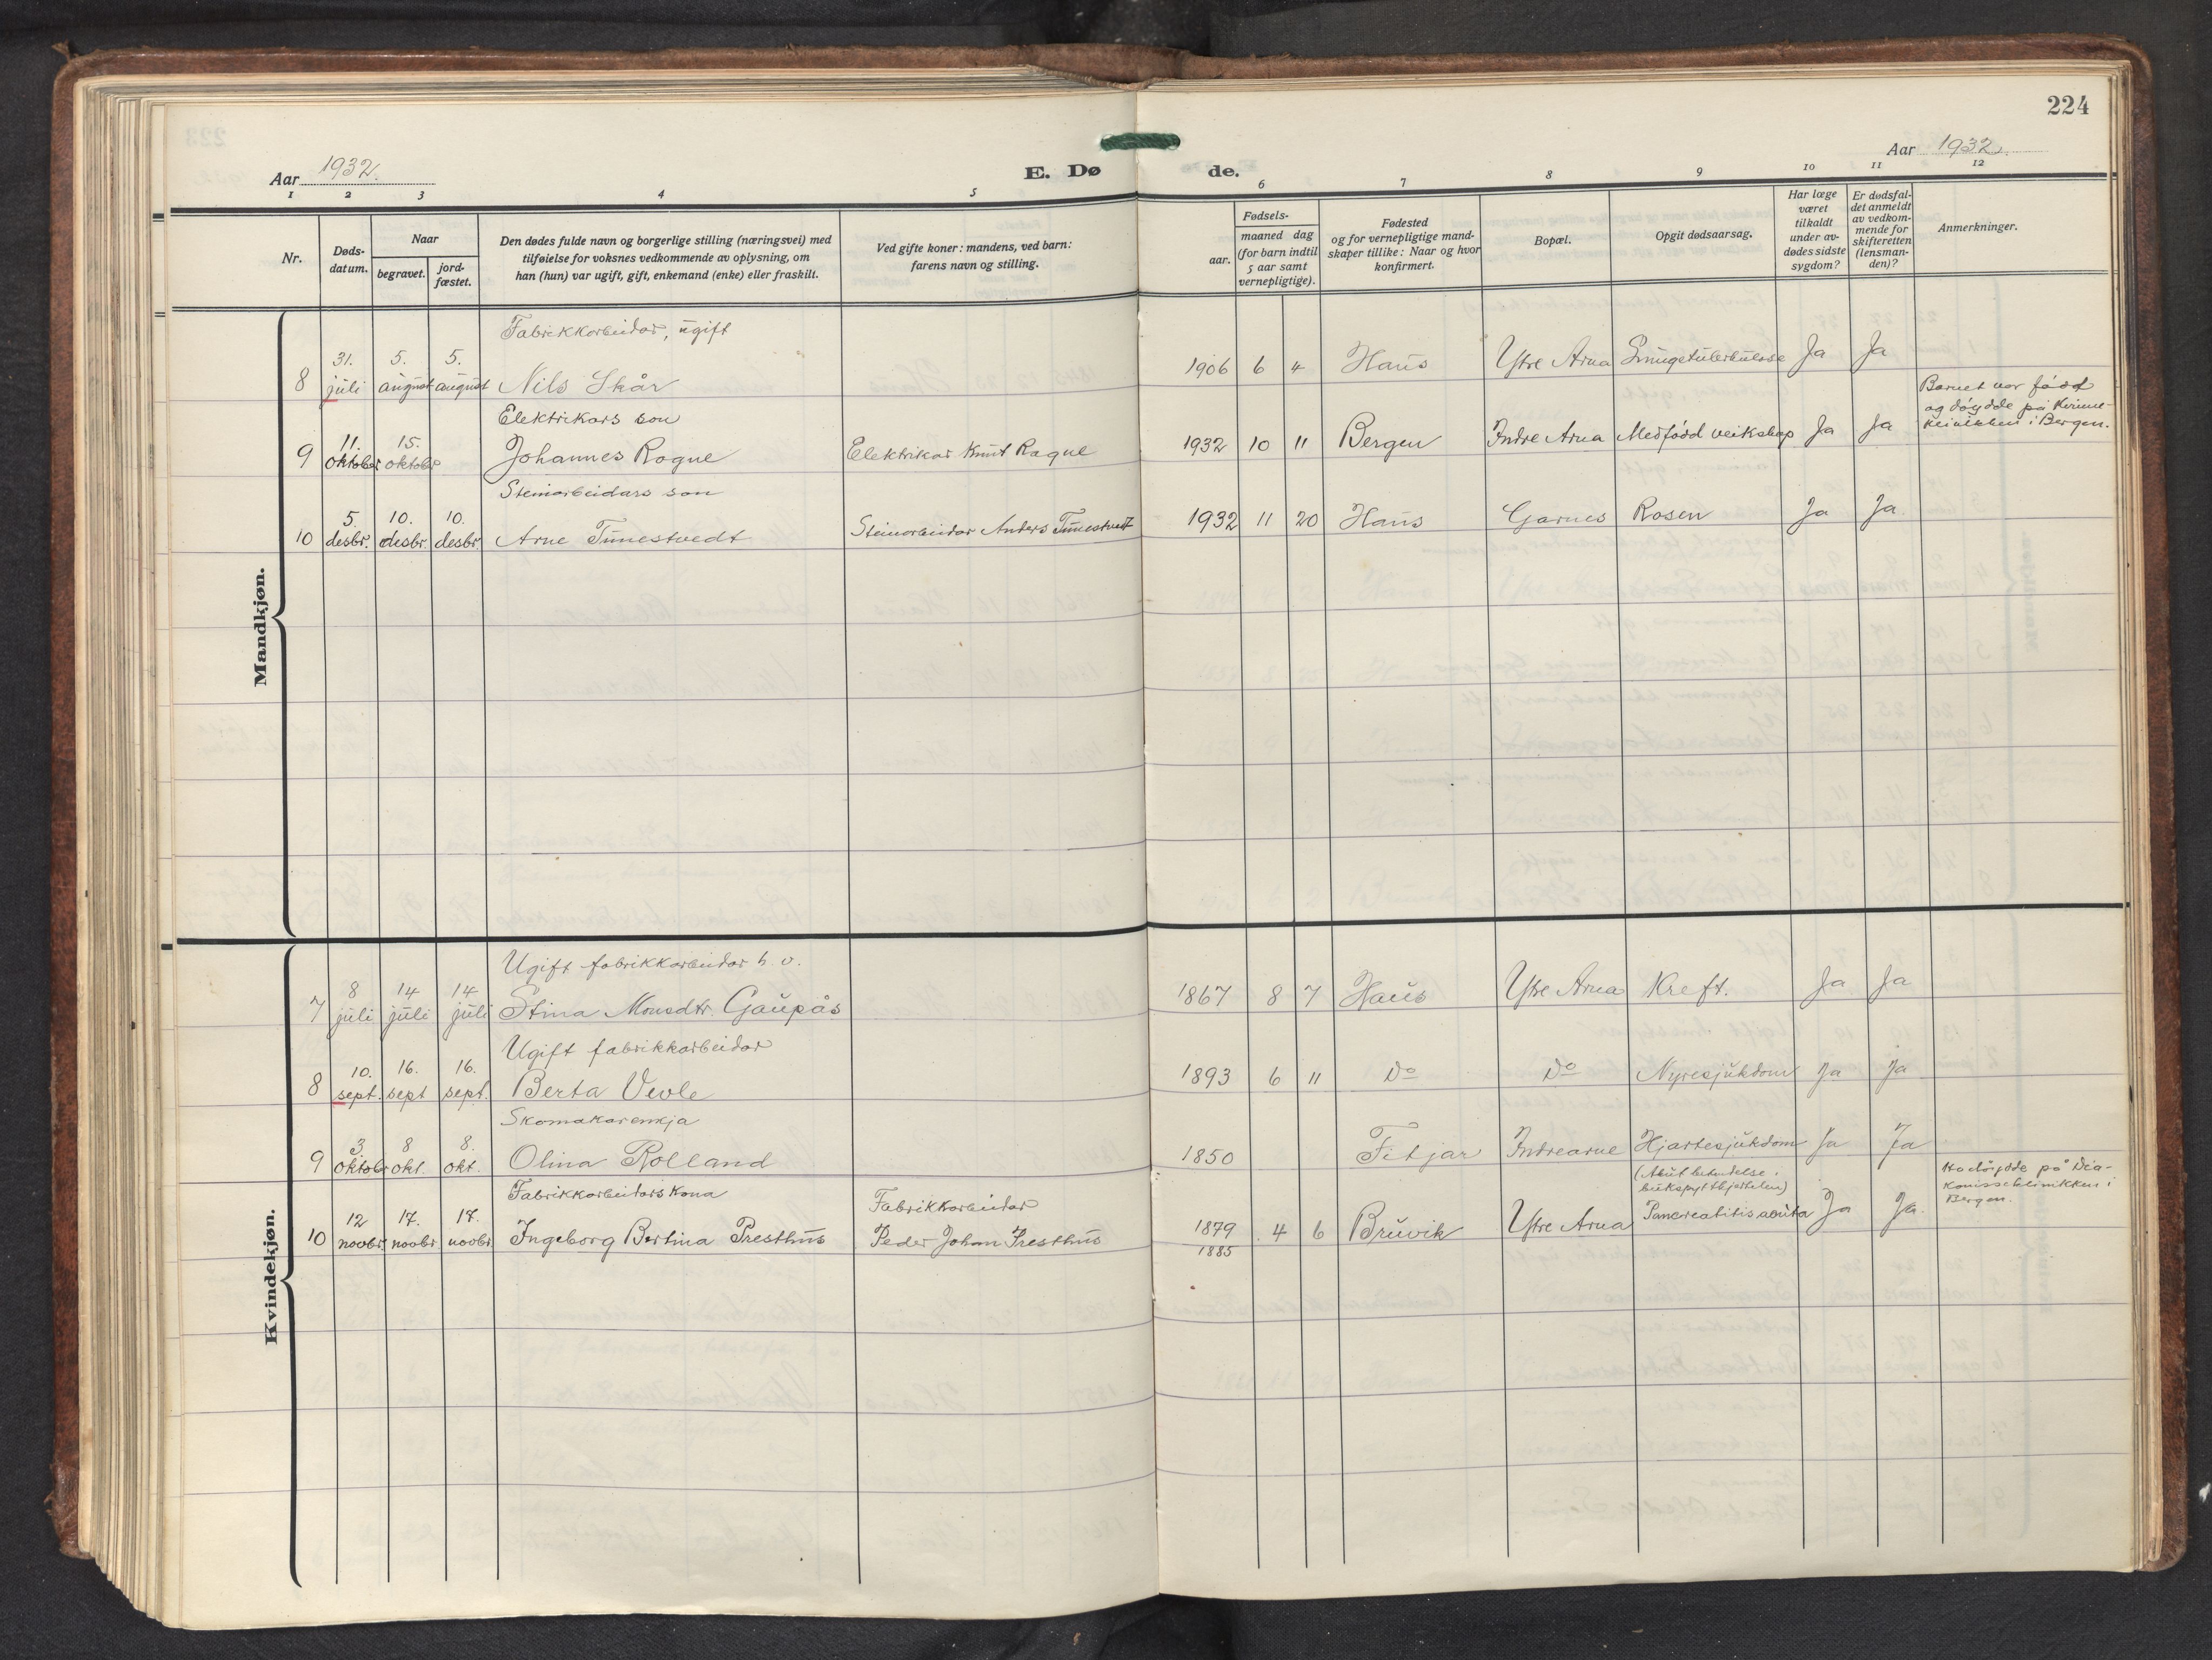 224
Aar 1932.
E. Dø de.
Aar 1932.
1 2 3 4 5 6 7 8 9 10 11 12
Nr.
Døds-
datum.
Naar
begravet.
jord-
fæstet.
Den dødes fulde navn og borgerlige stilling (næringsvei) med
tilføielse for voksnes vedkommende av oplysning, om
han (hun) var ugift, gift, enkemand (enke) eller fraskilt.
Ved gifte koner: mandens, ved barn:
farens navn og stilling.
Fødsels-
aar.
maaned dag
(for barn indtil
5 aar samt
vernepligtige).
Fødested
og for vernepligtige mand-
skaper tillike: Naar og hvor
konfirmert.
Bopæl.
Opgit dødsaarsag.
Har læge
været
tilkaldt
under av-
dødes sidste
sygdom?
Er dødsfal-
det anmeldt
av vedkom-
mende for
skifteretten
(lensman-
den)?
Anmerkninger.
Mandkjøn.
Fabrikkarbeidar, ugift
31. 5. 5.
8 juli august august Nils Skår 1906 6 4 Haus Ytre Arna Lungetuberkulose Ja Ja
Elektrikars son
11. 15.
9 oktober oktober Johannes Rogne Elektrikar Knut Rogne 1932 10 11 Bergen Indre Arna Medfødd veikskap Ja Ja
Barnet var fødd
og døydde på Kvinne-
klinikken i Bergen.
Steinarbeidars son
5. 10. 10.
10 desbr. desbr. desbr. Arne Tunestvedt Steinarbeidar Anders Tunestvedt 1932 11 20 Haus Garnes Rosen Ja Ja
Kvindekjøn.
Ugift fabrikkarbeidar h. v.
8 14 14
7 juli juli juli Stina Monsdtr. Gaupås 1867 8 7 Haus Ytre Arna Kreft. Ja Ja
Ugift fabrikkarbeidar
10. 16. 16.
8 sept. sept sept. Berta Vevle 1893 6 11 Do Do Nyresjukdom Ja Ja
Skomakarenkja
3. 8 8.
9 oktober okt. okt. Olina Rolland 1850 Fitjar Indrearne Hjartesjukdom Ja Ja
Fabrikkarbeidars kona
12 17. 17.
10 novbr. novbr. novbr. Ingeborg Bertina Presthus
Fabrikkarbeidar
Peder Johan Presthus
1879 4 6 Bruvik Ytre Arna
1885
(Akut betendelse i
bukspyttkjertelen)
Pancreatitis acuta Ja Ja
Ho døydde på Dia-
konisseklinikken i
Bergen.